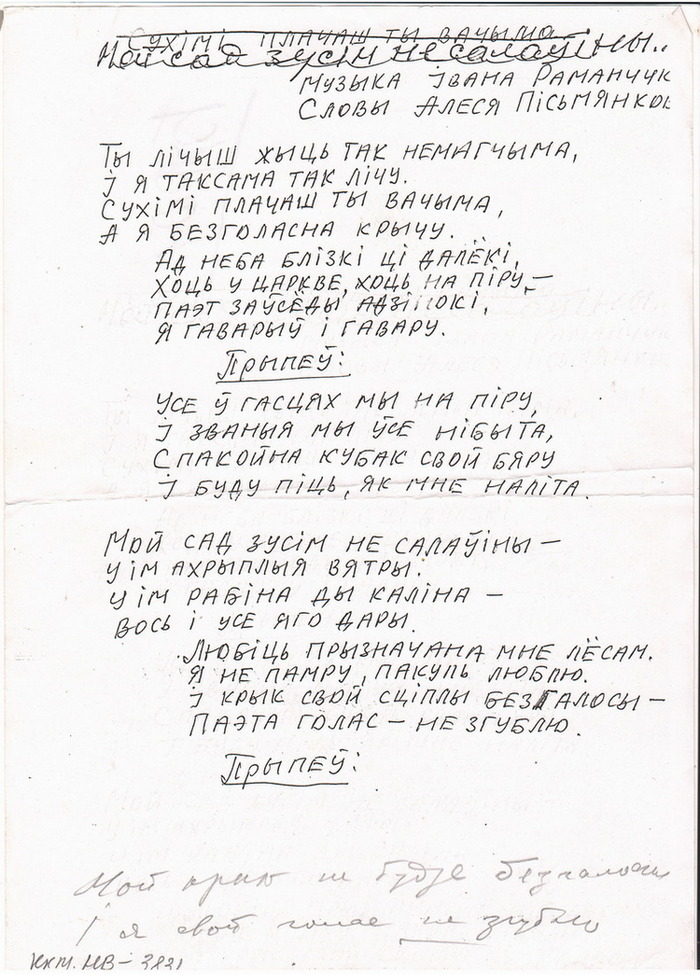 Сухімі плачаш ты вачыма
Мой сад зусім не салаўіны..
Музыка Івана Раманчук
Словы Алеся Пісьмянков
Ты лічыш жыць так немагчыма,
І я таксама так лічу.
Сухімі плачаш ты вачыма,
А я безголасна крычу.
Ад неба блізкі ці далёкі,
Хоць у царкве, хоць на піру,—
Паэт заўсёды адзінокі,
Я гаварыў і гавару.
Прыпеў:
Усе ў гасцях мы на піру,
І званыя мы ўсе нібыта,
Спакойна кубак свой бяру
І буду піць, як мне наліта.
Мой сад зусім не салаўіны —
У ім ахрыплыя вятры.
У ім рабіна ды каліна —
Вось і усе яго дары.
Любіць прызначана мне лёсам.
Я не памру, пакуль люблю.
І крык свой сціплы безгалосы —
Паэта голас — не згублю.
Прыпеў:
Мой крык не будзе безгалосы
І я свой голас не згублю
ККМ. НВ — 3831